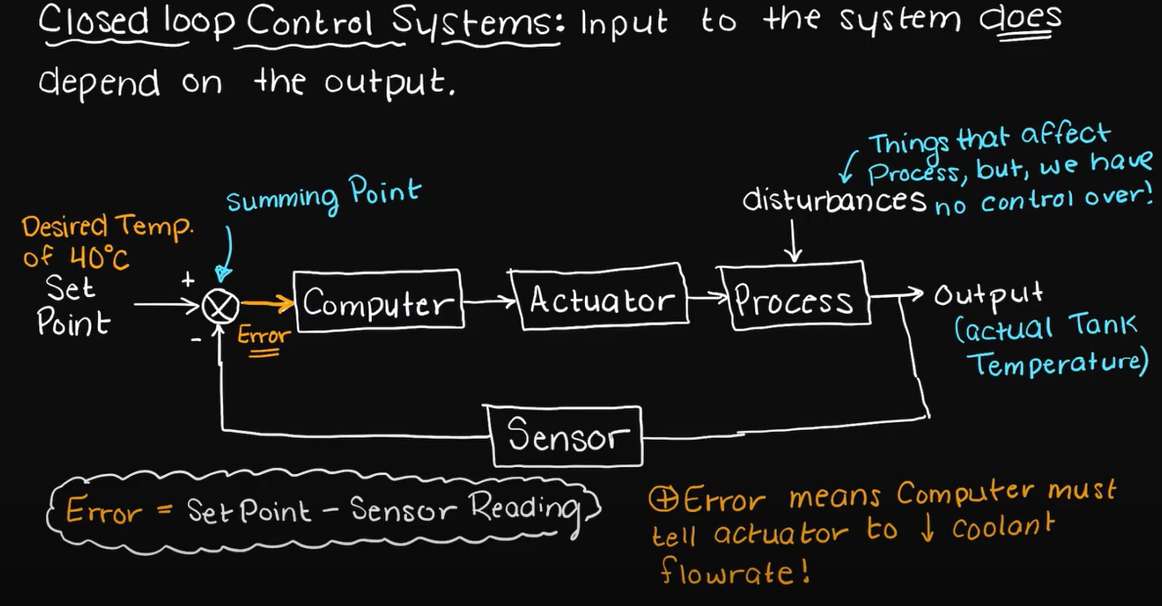 Closed loop Control Systems: Input to the system does
depend on the output.
Things that affect
Process, but, we have
no control over!
disturbances
Summing Point
Desired Temp.
of 40°C
Set
Point
+
-
Error
Computer
Actuator
Process
Output
(actual Tank
Temperature)
Sensor
Error = Set Point - Sensor Reading
⊕ Error means Computer must
tell actuator to ↓ coolant
flowrate!